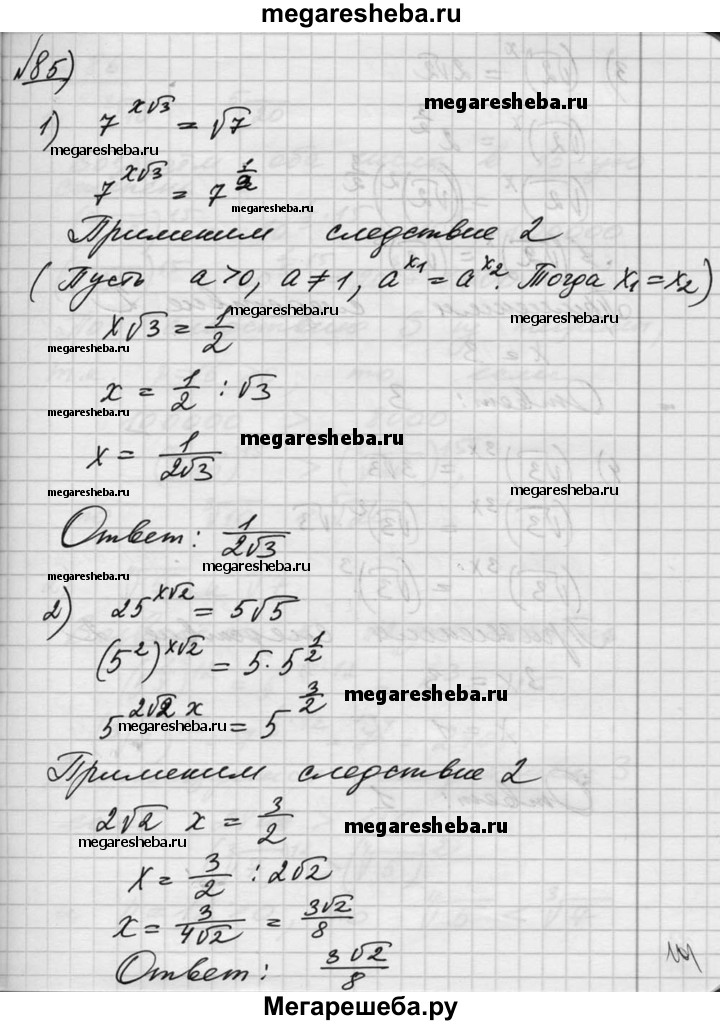 megaresheba.ru
№85)
megaresheba.ru
1) 7^{x√3} = √7
megaresheba.ru
7^{x√3} = 7^{1/2}
megaresheba.ru
Применим следствие 2
(Пусть a>0, a≠1, a^{x₁} = a^{x₂}. Тогда x₁=x₂)
megaresheba.ru
megaresheba.ru
x√3 = 1/2
megaresheba.ru
x = 1/2 : √3
megaresheba.ru
megaresheba.ru
x = 1/(2√3)
megaresheba.ru
megaresheba.ru
Ответ: 1/(2√3)
megaresheba.ru
megaresheba.ru
2) 25^{x√2} = 5√5
(5²)^{x√2} = 5·5^{1/2}
megaresheba.ru
5^{2√2 x} = 5^{3/2}
megaresheba.ru
Применим следствие 2
2√2 x = 3/2
megaresheba.ru
megaresheba.ru
x = 3/2 : 2√2
x = 3/(4√2) = 3√2/8
Ответ: 3√2/8
megaresheba.ru
Мегарешеба.ру